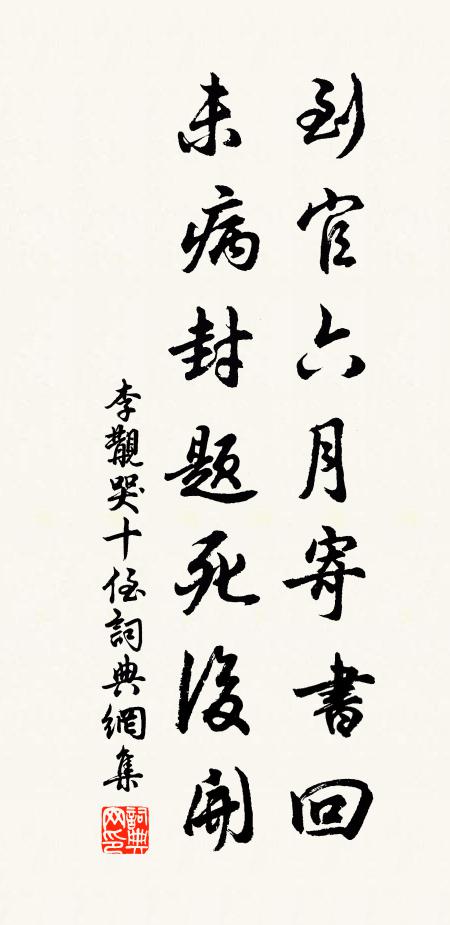 到官六月寄書回
未病封題死後開
李覯哭十侄詞典網集
詞典网印